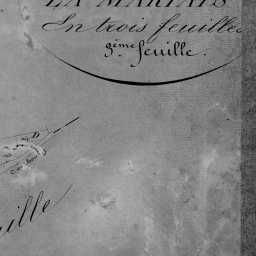 LA MARTAIS
En trois feuilles
3ème feuille.
ille